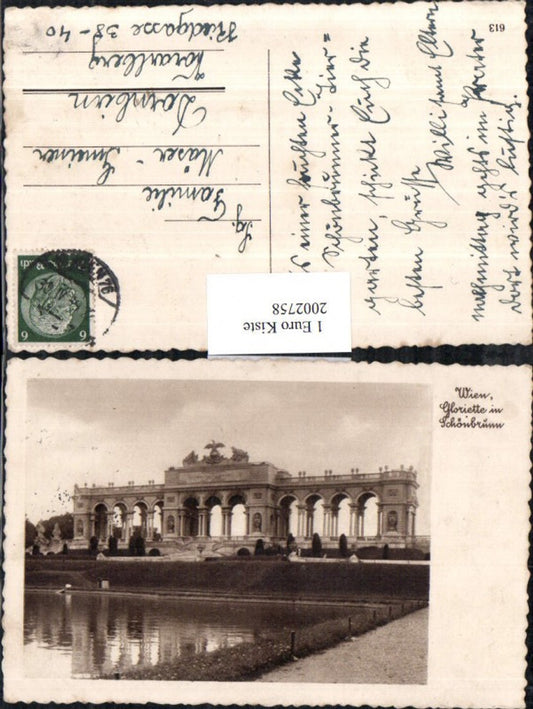 613
Aus einer leichten Ecke
Schönbrunner-Tier=
garten, schickt Euch die
besten Grüsse
Willi samt Eltern
nachmittag gehts im Prater
dort wird's lustig.
Sg.
Familie
Mäser - Gmeiner
Dornbirn
Vorarlberg
Riedgasse 38-40
6 6
1 Euro Kiste
2002758
Wien,
Gloriette in
Schönbrunn